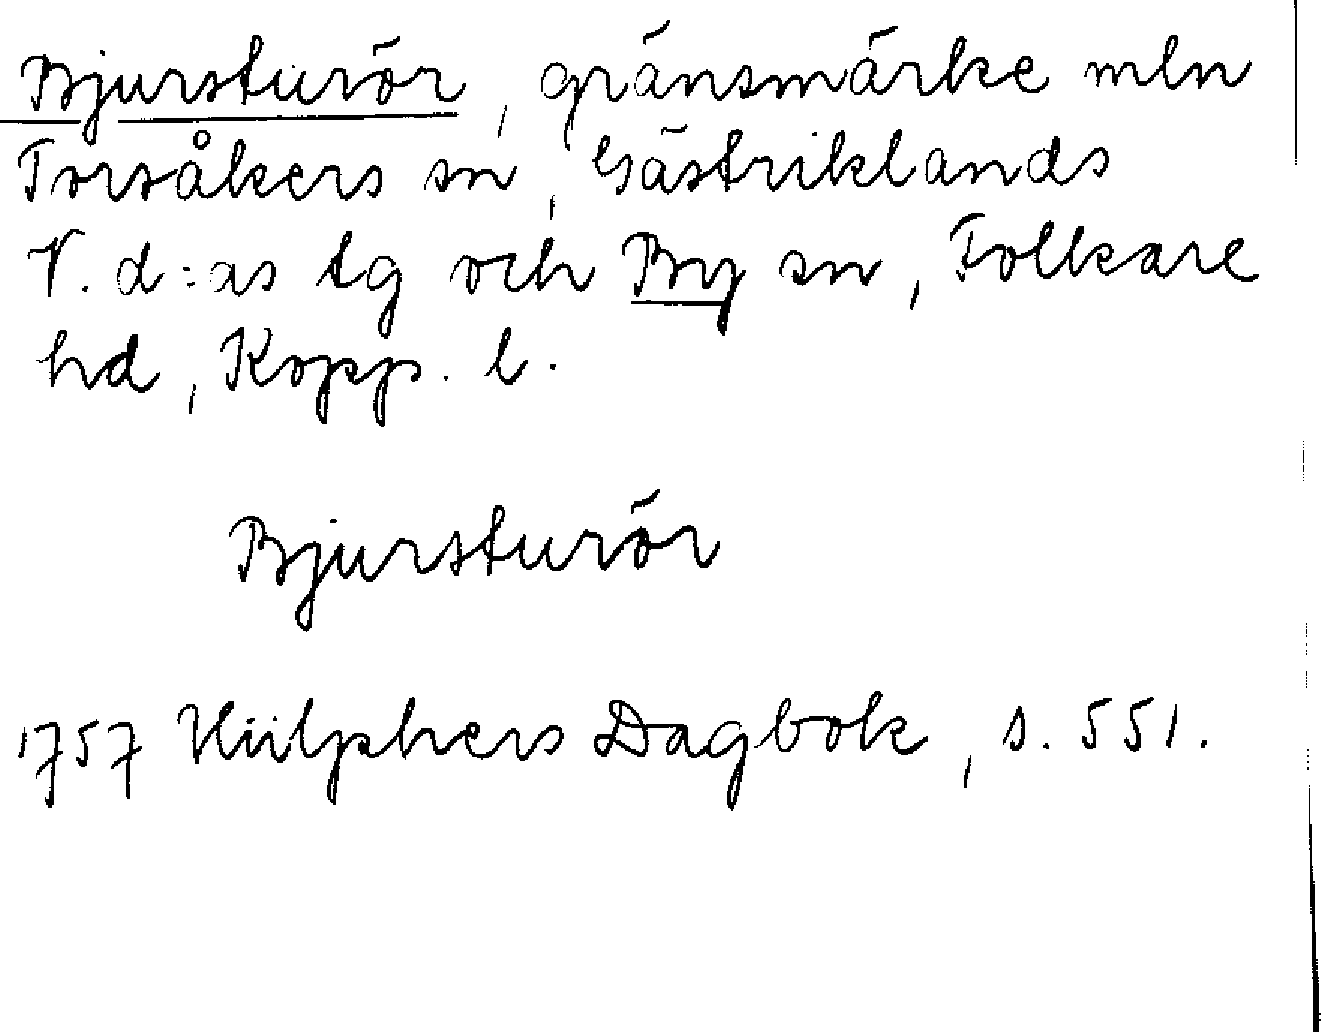 Bjursturör, gränsmärke mln
Torsåkers sn, Gästriklands
V. d:as tg och By sn, Folkare
hd, Kopp. l.
Bjursturör
1757 Hülphers Dagbok, s. 551.